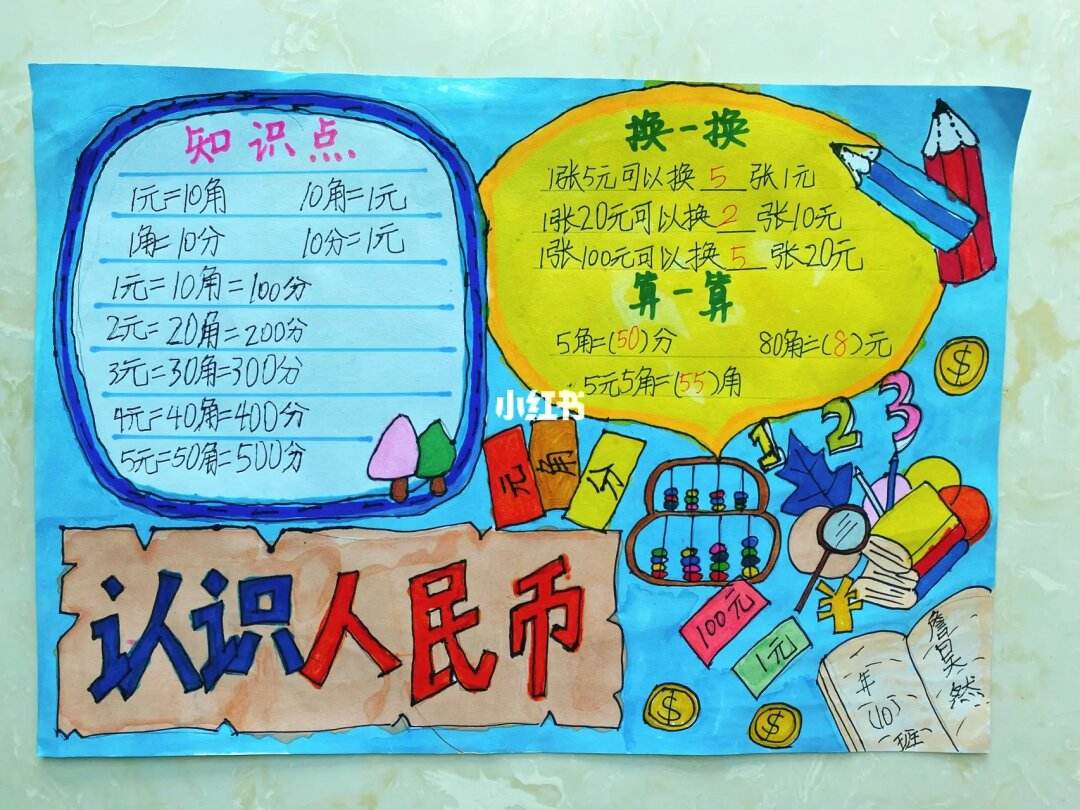 知识点
1元=10角 10角=1元
1角=10分 10分=1元
1元=10角=100分
2元=20角=200分
3元=30角=300分
4元=40角=400分
5元=50角=500分
换一换
1张5元可以换 5 张1元
1张20元可以换 2 张10元
1张100元可以换 5 张20元
算一算
5角=(50)分 80角=(8)元
5元5角=(55)角
小红书
元 角 分
1 2 3
认识人民币
100元
1元
$
$
$
一年
(10)
班
詹昊然